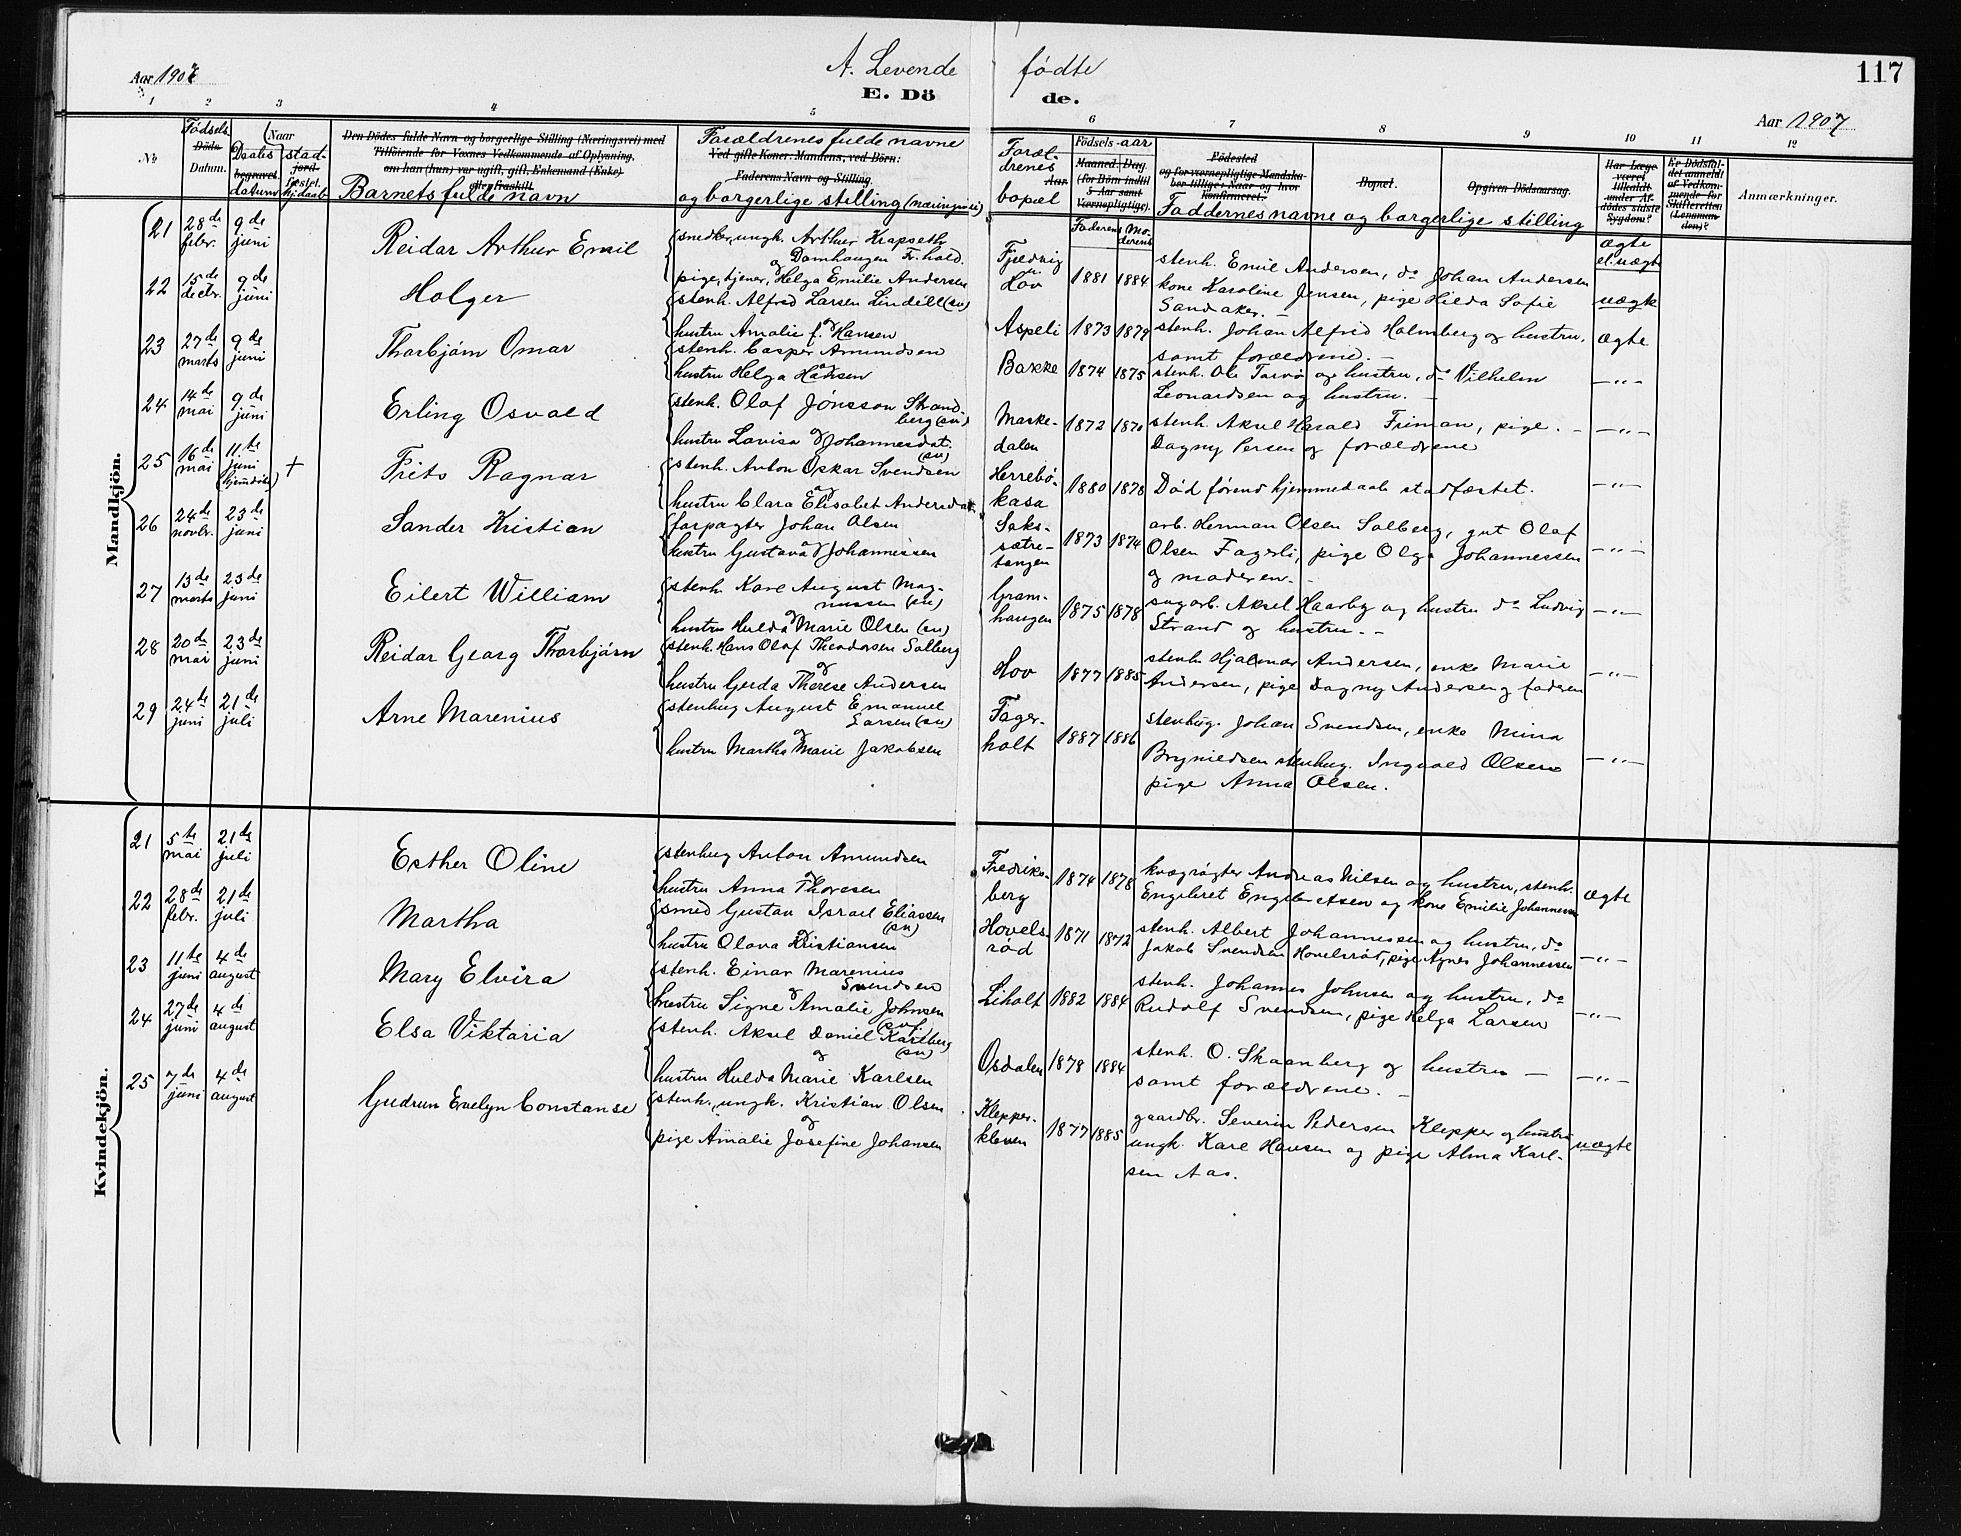 A. Levende fødte
117
Aar 1907
E. Döde.
Aar 1907
1 2 3 4 5 6 7 8 9 10 11 12
No
Fødsels
Döds-
Datum.
Naar
Daabs begravet. datum
stad- jord- fæstet. hj.daab
Den Dödes fulde Navn og borgerlige Stilling (Næringsvei) med
Tilföiende for Voxnes Vedkommende af Oplysning,
om han (hun) var ugift, gift, Enkemand (Enke)
eller fraskilt.
Barnets fulde navn
Forældrenes fulde navne
Ved gifte Koner: Mandens, ved Börn:
Faderens Navn og Stilling.
og borgerlige stilling (næringsvei)
Foræl-
drenes
bopæl
Födsels-aar
Aar Maaned, Dag
(for Börn indtil
5 Aar samt
Værnepligtige).
Faderens Moderens
Födested
og for værnepligtige Mandska-
ber tillige: Naar og hvor
Konfirmeret.
Faddernes navne og borgerlige stilling
Bopæl.
Opgiven Dödsaarsag.
Har Læge
været
tilkaldt
under Af-
dödes sidste
Sygdom?
ægte
el. uægte
Er Dödsfal-
det anmeldt
af Vedkom-
mende for
Skifteretten
(Lensman-
den)?
Anmærkninger.
Mandkjön.
21 28de febr. 9de juni Reidar Arthur Emil
snedker, ungk. Arthur Krapseth
og Damhaugen Fr.hald.
pige, tjener, Helga Emilie Andersen
Fjeldvig u. Hov 1881 1884
stenh. Emil Andersen, do Johan Andersen
kone Karoline Jensen, pige Hilda Sofie
Sandaker. –
uægte
22 15de decbr. 9de juni Holger
stenh. Alfred Larsen Lindell (sv)
og
hustru Amalie f. Hansen
Aspeli 1873 1879
stenh. Johan Alfred Holmberg og hustru,
samt forældrene. –
ægte
23 27de marts 9de juni Thorbjørn Omar
stenh. Casper Amundsen
og
hustru Helga Hansen
Bakke 1874 1875
stenh. Ole Tarvø og hustru, do Vilhelm
Leonardsen og hustru. –
–"–
24 14de mai 9de juni Erling Osvald
stenh. Olaf Jönsson Strand-
berg (sv)
hustru Lovisa og Johannesdat.
(sv)
Maske-
dalen 1872 1870
stenh Aksel Harald Friman, pige
Dagny Persen og forældrene
–"–
25 16de mai 11te juni (hjemdøbt) † Frits Ragnar
stenh. Anton Oskar Svendsen
og
hustru Clara Elisabet Andersdat.
Herrebø-
kasa 1880 1878
Død førend hjemmedaab stadfæstet.
–"–
26 24de novbr. 23de juni Sander Kristian
forpagter Johan Olsen
og
hustru Gustava Johannessen
Saks-
sætre-
tangen 1873 1874
arb. Herman Olsen Solberg, gut Olaf
Olsen Fagerli, pige Olga Johannessen
og moderen. –
–"–
27 13de marts 23de juni Eilert William
stenh. Karl August Mag-
nussen (sv)
og
hustru Hulda Marie Olsen (sv)
Gram-
haugen 1875 1878
sagarb. Aksel Haarby og hustru do Ludvig
Strand og hustru. –
–"–
28 20de mai 23de juni Reidar Georg Thorbjørn
stenh. Hans Olaf Theodorsen Solberg
og
hustru Gerda Therese Andersen
Hov 1877 1885
stenh. Hjalmar Andersen, enke Marie
Andersen, pige Dagny Andersen og faderen
–"–
29 24de juni 21de juli Arne Marenius
stenhug August Emanuel
Larsen (sv)
og
hustru Martha Marie Jakobsen
Fager-
holt 1887 1886
stenhug. Johan Svendsen, enke Mina
Brynildsen stenhug. Ingvald Olsen
pige Anna Olsen.
–"–
Kvindekjön.
21 5te mai 21de juli Esther Oline
stenhug Anton Amundsen
og
hustru Anna Thoresen
Fredriks-
berg 1874 1878
kvægrøgter Andreas Nilsen og hustru, stenh.
Engebret Engebretsen og kone Emilie Johannessen
ægte
22 28de febr. 21de juli Martha
smed Gustav Israel Eliassen
(sv)
og
hustru Olava Kristiansen
Hovels-
rød 1871 1872
stenh. Albert Johannessen og hustru, do
Jakob Svendsen Hovelsrøt, pige Agnes Johannessen
–"–
23 11te juni 4de august Mary Elvira
stenh. Einar Marenius
Svendsen
og
hustru Signe Amalie Johnsen
Liholt 1882 1884
stenh. Johannes Johnsen og hustru, do
Rudolf Svendsen, pige Helga Larsen
–"–
24 27de juni 4de august Elsa Viktoria
stenh. Aksel Daniel Karlberg
(sv)
og
hustru Hulda Marie Karlsen
Osdalen 1878 1884
stenh. O. Skaanberg og hustru –
samt forældrene. –
–"–
25 7de juni 4de august Gudrun Evelyn Constanse
stenh., ungk. Kristian Olsen
og
pige Amalie Josefine Johansen
Klepper-
kleven 1877 1885
gaardbr. Severin Pedersen Klepper og hustru
ungk. Karl Hansen og pige Alma Karl-
sen Aas.
uægte